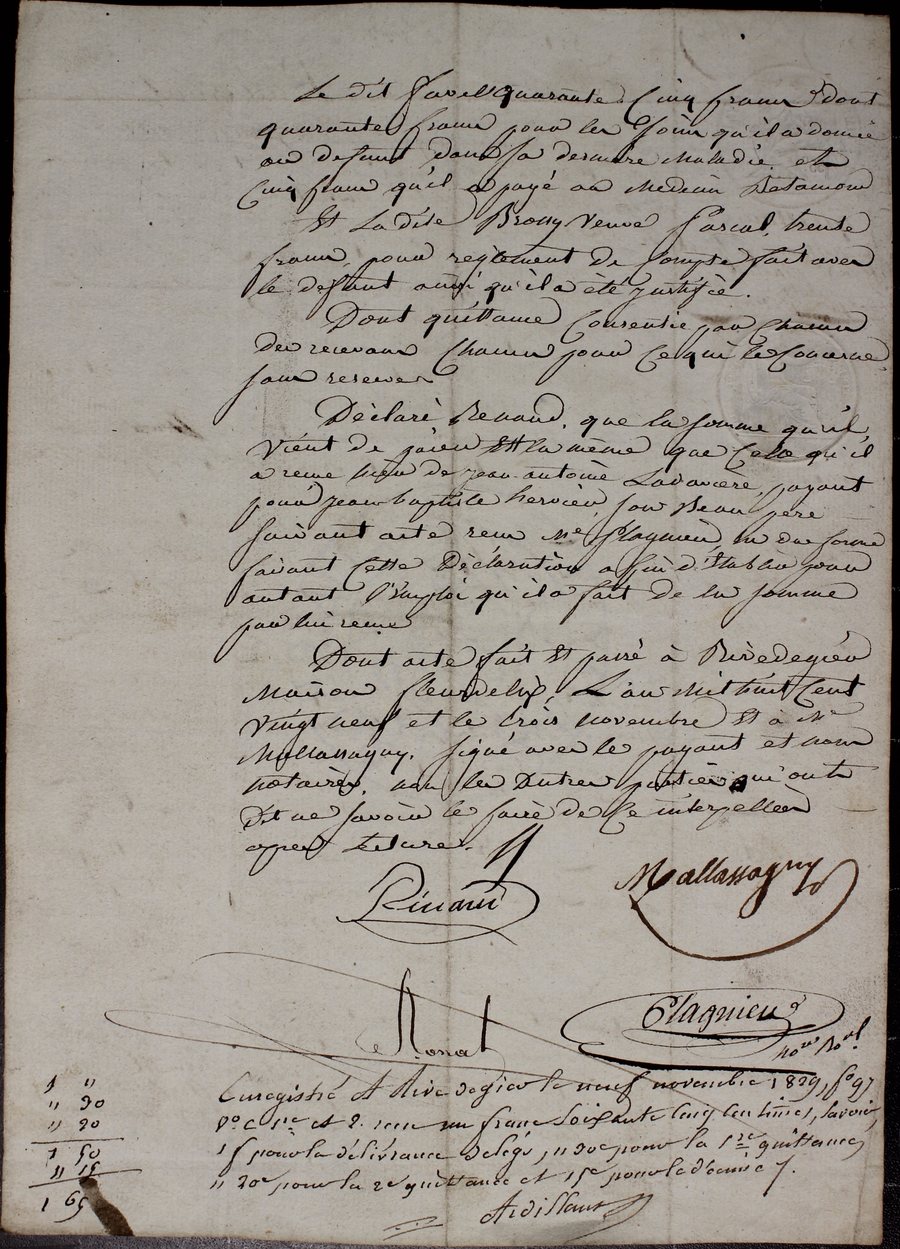 Le dit Favel quarante Cinq francs dont
quarante francs pour les Soins qu'il a donné
au defunt dans sa derniere Maladie et
Cinq francs qu'il a payé au Medecin
Et La dite Brossy Veuve Pascal, trente
francs, pour reglement de Compte fait avec
le defunt ainsi qu'il a été justifié.
Dont quittance Consentie par Chacun
des recevans Chacun pour Ce qui le Concerne
sans reserves
Déclare Renaud, que la somme qu'il
Vient de païer Est la même que Celle qu'il
a reçue hier de jean antoine Lavavere, payant
pour jean baptiste hervier, son Beau pere
suivant acte reçu Me Plagnieu en due forme
faisant Cette Déclaration afin d'Etablir pour
autant l'Emploi qu'il a fait de la somme
par lui reçue
Dont acte fait Et passé à Rivedegier
Maison fleurdelix, L'an Mil huit Cent
Vingt neuf et le trois novembre Et a Mr
Mallassagny, signé avec le payant et nous
notaires, non les autres parties qui ont
Dit ne savoir le faire de Ce interpellées
apres Lecture.
Rinaud
Mallassagny
Plagnieu
Ronat
no.re Ro.al
1 "
" 30
" 20
1 50
" 15
1 65
Enregistré A Rive de gier le neuf novembre 1829, fo 97
Vo C 1re et 2. reçu un franc Soixante Cinq Centimes, Savoir,
1f pour la délivrance de legs, " 30c pour la 1re quittance,
" 20c pour la 2e quittance et 15c pour le décime
Ardillant